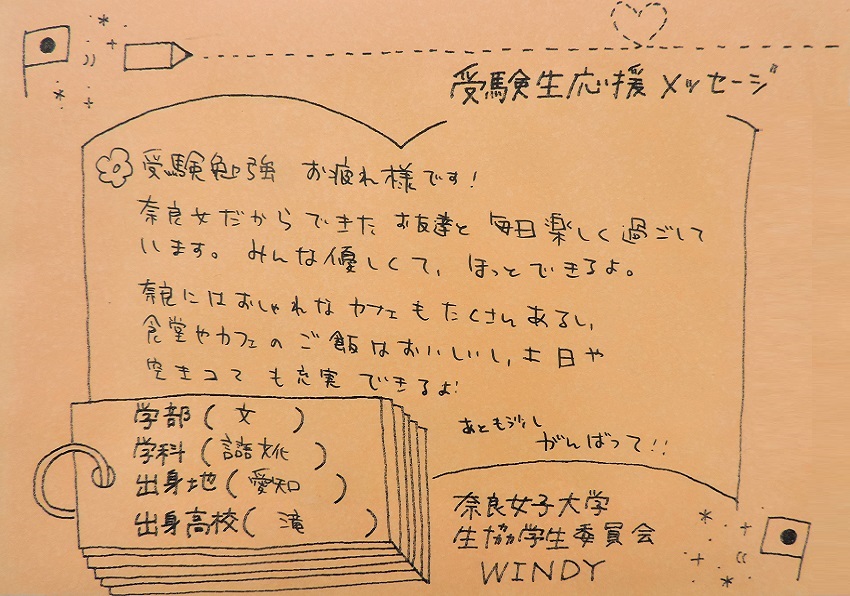 受験生応援メッセージ
受験勉強 お疲れ様です!
奈良女だからできたお友達と毎日楽しく過ごして
います。みんな優しくて、ほっとできるよ。
奈良にはおしゃれなカフェもたくさんあるし、
食堂やカフェのご飯はおいしいし、土日や
空きコマも充実できるよ!
あともう少し
がんばって!!
学部(文)
学科(言語文化)
出身地(愛知)
出身高校(滝)
奈良女子大学
生協学生委員会
WINDY